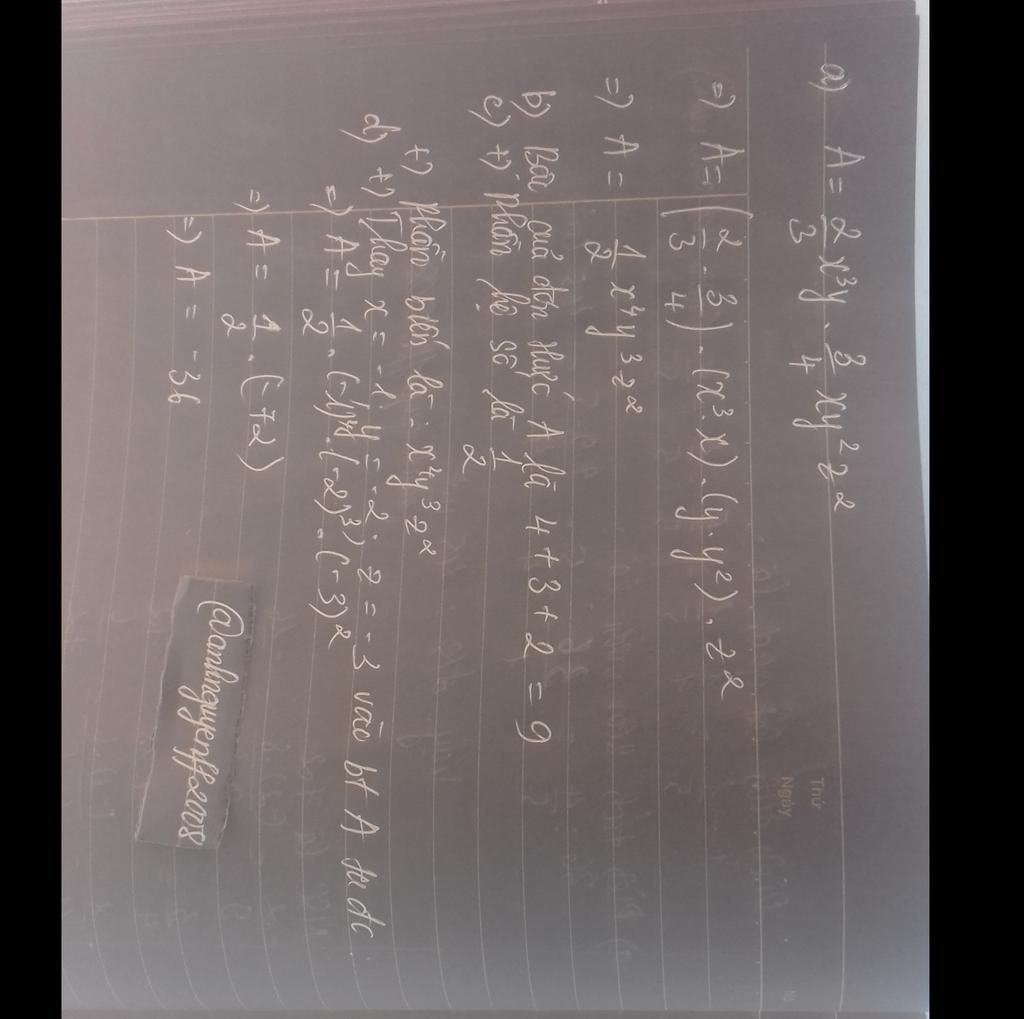 Thứ
Ngày
No
a) A = 2/3 x³y . 3/4 xy² z²
=> A = (2/3 . 3/4) . (x³ . x) . (y . y²) . z²
=> A = 1/2 x⁴y³z²
b) Bậc của đơn thức A là 4 + 3 + 2 = 9
c) +) Phần hệ số là 1/2
+) Phần biến là : x⁴y³z²
d) +) Thay x = -1 y = -2 ; z = -3 vào bt A ta đc
=> A = 1/2 . (-1)⁴ . (-2)³) . (-3)²
=> A = 1/2 . (-72)
=> A = -36
@anhnguyenff2008